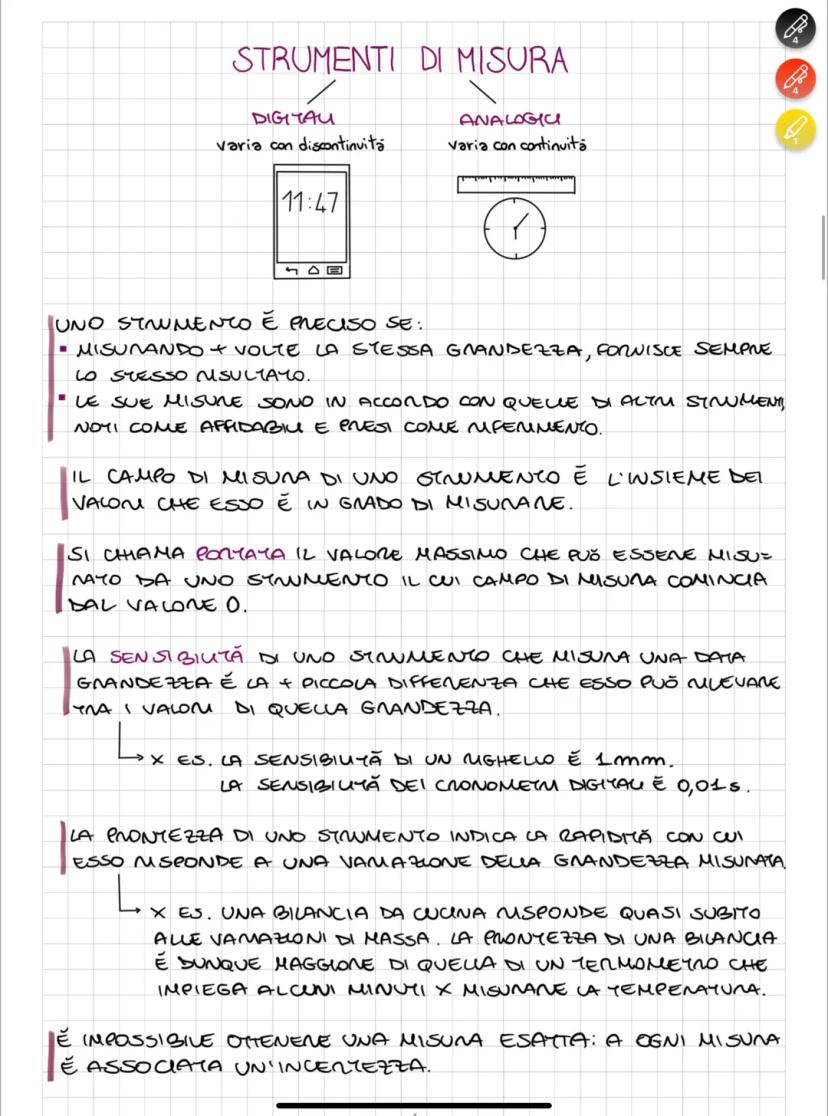 STRUMENTI DI MISURA
DIGITALI
ANALOGICI
varia con discontinuità
varia con continuità
11:47
UNO STRUMENTO È PRECISO SE:
▪ MISURANDO + VOLTE LA STESSA GRANDEZZA, FORNISCE SEMPRE
LO STESSO RISULTATO.
▪ LE SUE MISURE SONO IN ACCORDO CON QUELLE DI ALTRI STRUMENTI,
NOTI COME AFFIDABILI E PRESI COME RIFERIMENTO.
IL CAMPO DI MISURA DI UNO STRUMENTO È L'INSIEME DEI
VALORI CHE ESSO È IN GRADO DI MISURARE.
SI CHIAMA PORTATA IL VALORE MASSIMO CHE PUÒ ESSERE MISU=
RATO DA UNO STRUMENTO IL CUI CAMPO DI MISURA COMINCIA
DAL VALORE 0.
LA SENSIBILITÀ DI UNO STRUMENTO CHE MISURA UNA DATA
GRANDEZZA È LA + PICCOLA DIFFERENZA CHE ESSO PUÒ RILEVARE
TRA I VALORI DI QUELLA GRANDEZZA.
→ X ES. LA SENSIBILITÀ DI UN RIGHELLO È 1mm.
LA SENSIBILITÀ DEI CRONOMETRI DIGITALI È 0,01s.
LA PRONTEZZA DI UNO STRUMENTO INDICA LA RAPIDITÀ CON CUI
ESSO RISPONDE A UNA VARIAZIONE DELLA GRANDEZZA MISURATA.
→ X ES. UNA BILANCIA DA CUCINA RISPONDE QUASI SUBITO
ALLE VARIAZIONI DI MASSA. LA PRONTEZZA DI UNA BILANCIA
È DUNQUE MAGGIORE DI QUELLA DI UN TERMOMETRO CHE
IMPIEGA ALCUNI MINUTI X MISURARE LA TEMPERATURA.
È IMPOSSIBILE OTTENERE UNA MISURA ESATTA: A OGNI MISURA
È ASSOCIATA UN'INCERTEZZA.
4
4
1